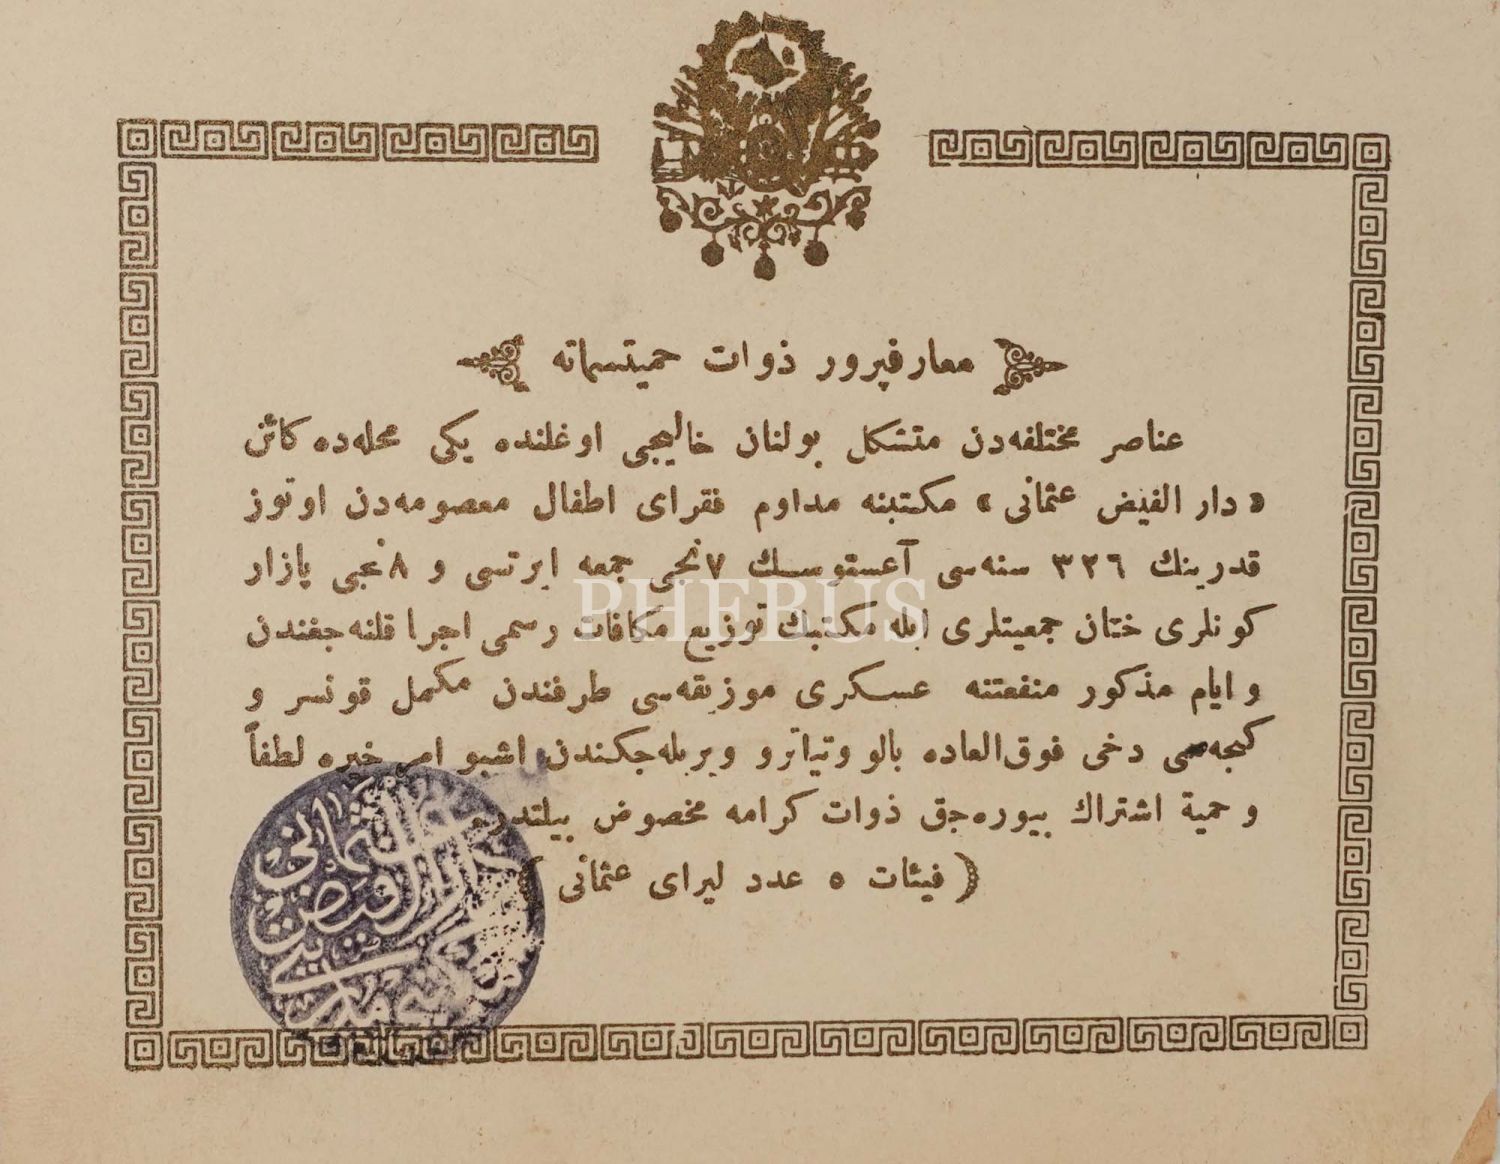 معارفپرور ذوات حمیتسماته
عناصر مختلفه‌دن متشكل بولنان خالیجی اوغلنده یكی محله‌ده كائن
« دار الفیض عثمانی » مكتبنه مداوم فقرای اطفال معصومه‌دن اوتوز
قدرینك ٣٢٦ سنه‌سی آغستوسك ٧نجی جمعه ایرتسی و ٨نجی پازار
كونلری ختان جمعیتلری ایله مكتبك توزیع مكافات رسمی اجرا قلنه‌جغندن
و ایام مذكور منفعتنه عسكری موزیقه‌سی طرفندن مكمل قونسر و
كیجه‌سی دخی فوق‌العاده بالو و تیاترو ویریله‌جكندن اشبو امر خیره لطفاً
و حمیة اشتراك بیوره‌جق ذوات كرامه مخصوص بیلتدر.
( فیئات ٥ عدد لیرای عثمانی )
PHEBUS